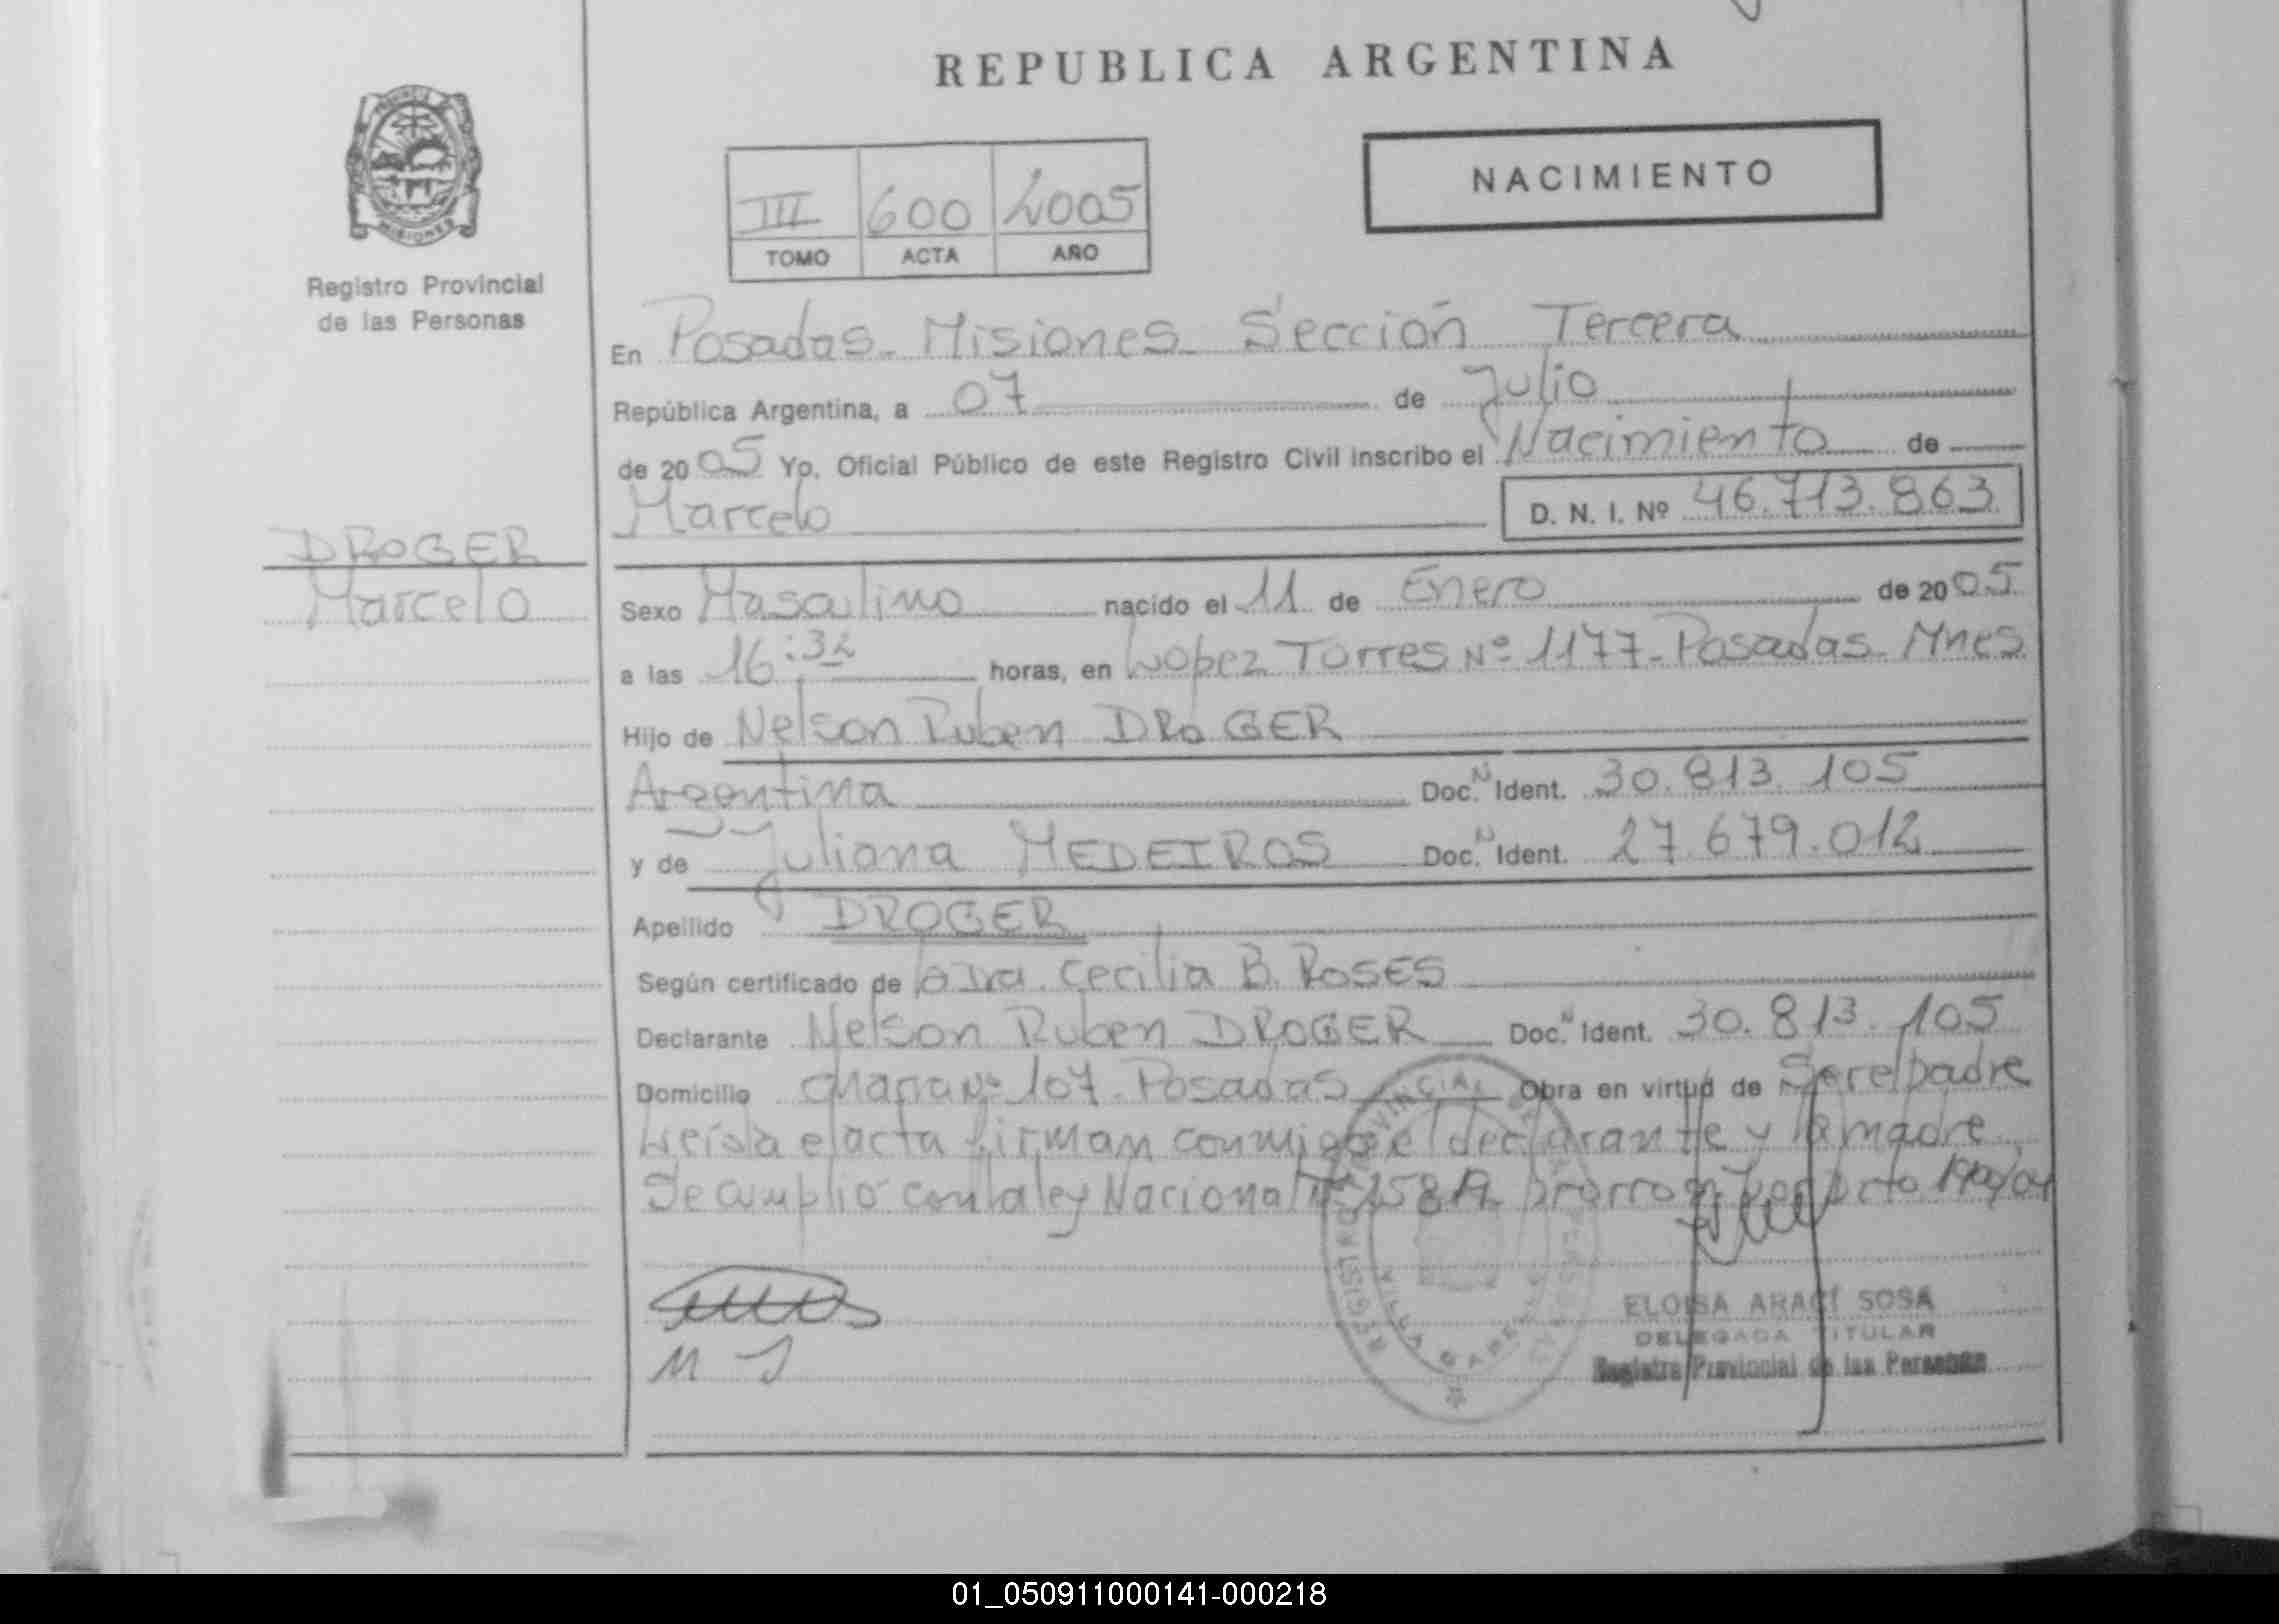 REPUBLICA ARGENTINA
NACIMIENTO
III 600 2005
TOMO ACTA AÑO
PROVINCIA
MISIONES
Registro Provincial
de las Personas
En Posadas - Misiones - Sección Tercera
República Argentina, a 07 de Julio
de 2005 Yo, Oficial Público de este Registro Civil inscribo el Nacimiento de
Marcelo D. N. I. Nº 46.713.863
DROGER
Marcelo
Sexo Masculino nacido el 11 de Enero de 2005
a las 16:32 horas, en López Torres Nº 1177 - Posadas - Mnes
Hijo de Nelson Ruben DROGER
Argentina Doc. N Ident. 30.813.105
y de Juliana MEDEIROS Doc. N Ident. 27.679.012
Apellido DROGER
Según certificado de la Dra. Cecilia B. ROSES
Declarante Nelson Ruben DROGER Doc. N Ident. 30.813.105
Domicilio Chacra Nº 107 - Posadas Obra en virtud de Ser el padre
Leída el acta firman conmigo el declarante y la madre
Se amplió con la ley Nacional
M J
REGISTRO PROVINCIAL DE LAS PERSONAS
VILLA CABELLO
ELOISA ARACÍ SOSA
DELEGADA TITULAR
Registro Provincial de las Personas
01_050911000141-000218